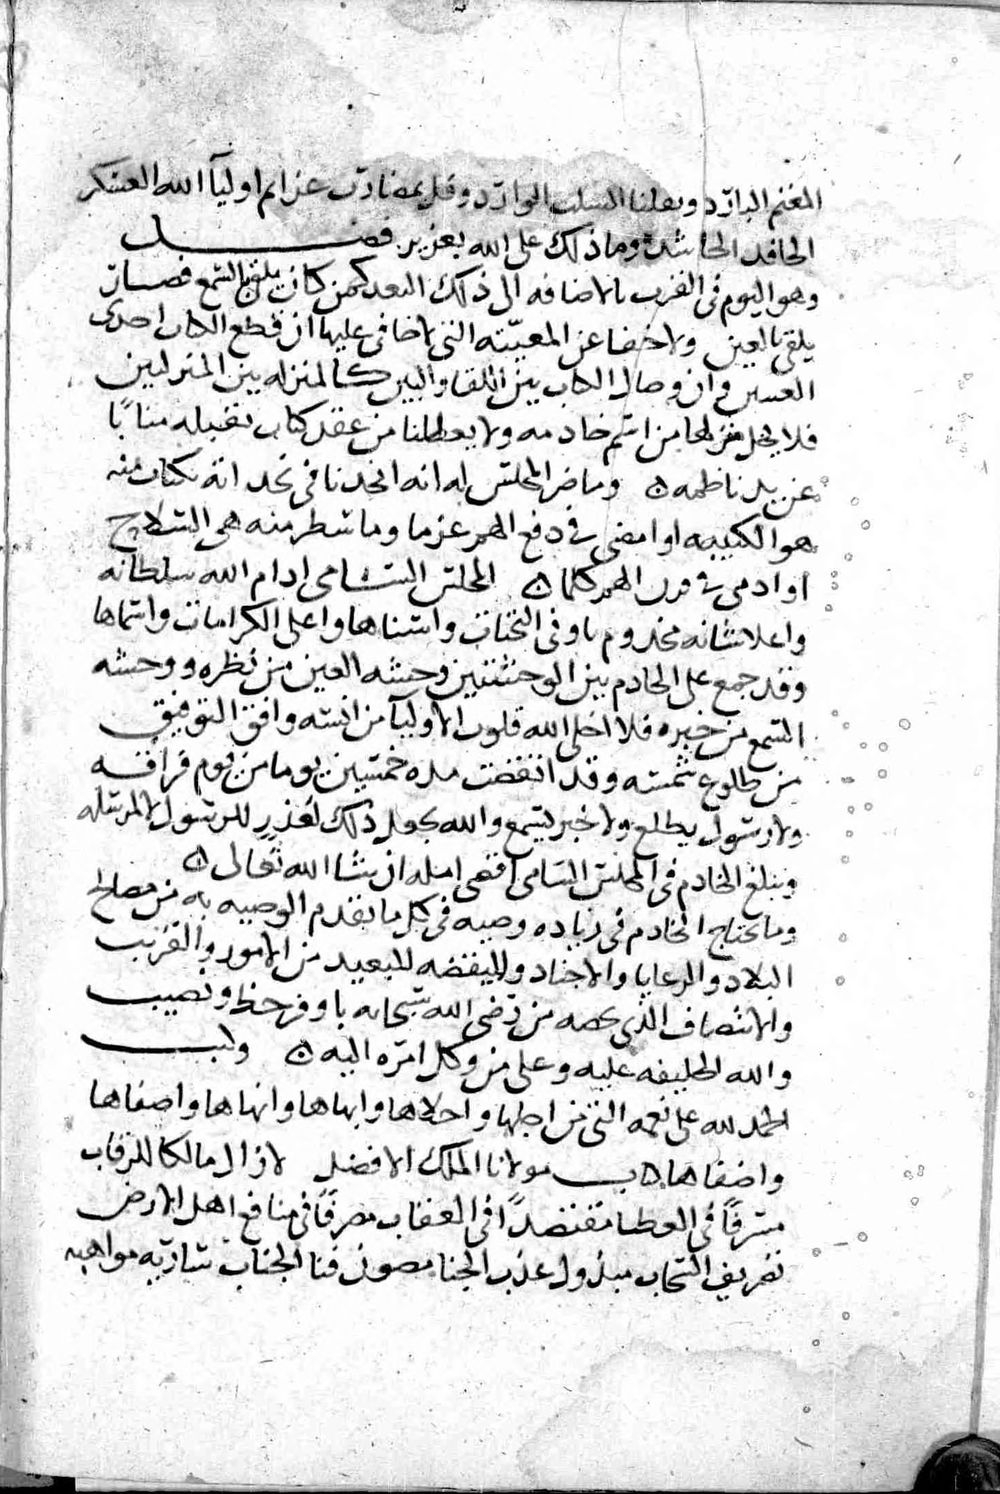 المغنم البارد ونفلنا السلب الوارد وفل بمضارب عزائم اوليآ الله العسكر
الحافد الحاشد وما ذلك على الله بعزيز فصل
وهو اليوم فى القرب بالاضافه الى ذلك البعد كمن كان يلقى بالسمع فصار
يلقى بالعين ولا خفا عن المعيّنه التى لا خافى عليها ان قطع الكتاب احدى
وان وصال الكتاب بين اللقا والبين كالمنزله بين المنزلتين
فلا يخل من اسم خادمه ولا يعطلنا من عقد كتاب تقبيله مناباً
عن يد ناظمه وما ضر المجلس له انه انجدنا فى نجدانه بكتاب منه
هو الكتيبه او امضى فى دفع الهم عزما وما سطر منه هى السلاح
او ادمى فى قرن الهم كلما المجلس السامى ادام الله سلطانه
واعلا شانه مخدوم باوفى التحيات واسناها واعلى الكرامات واسماها
وقد جمع على الخادم بين الوحشتين وحشه العين من نظره ووحشه
السمع من خبره فلا اخلى الله قلوب الاوليآ من انسه وافق التوفيق
من طلوع شمسه وقد انقضت مده خمسين يوما من يوم فراقه
ولا رسول يطلع ولا خبر يسمع والله يجعل ذلك لعذرٍ للرسول لا للمرسله
ويبلغ الخادم فى المجلس السامى اقصى امله ان شا الله تعالى
وما يحتاج الخادم فى زياده وصيه فى كل ما تقدم الوصيه به من مصالح
البلاد والرعايا والاجناد واليقضه للبعيد من الامور والقريب
والانصاف الذى يخصه من رضى الله سبحانه باوفر حظ ونصيب
والله الخليفه عليه وعلى من وكل امره اليه وكتب
الحمد لله على نعمه التى من اجلها واحلاها وابهاها وانهاها واصفاها
واضفاها كتاب مولانا الملك الافضل لا زال مالكا للرقاب
مسرفاً فى العطا مقتصداً فى العقاب مصرفاً فى منافع اهل الارض
تصريف السحاب مبذول عذب الجنا مصون فنا الجناب ساريه مواهبه